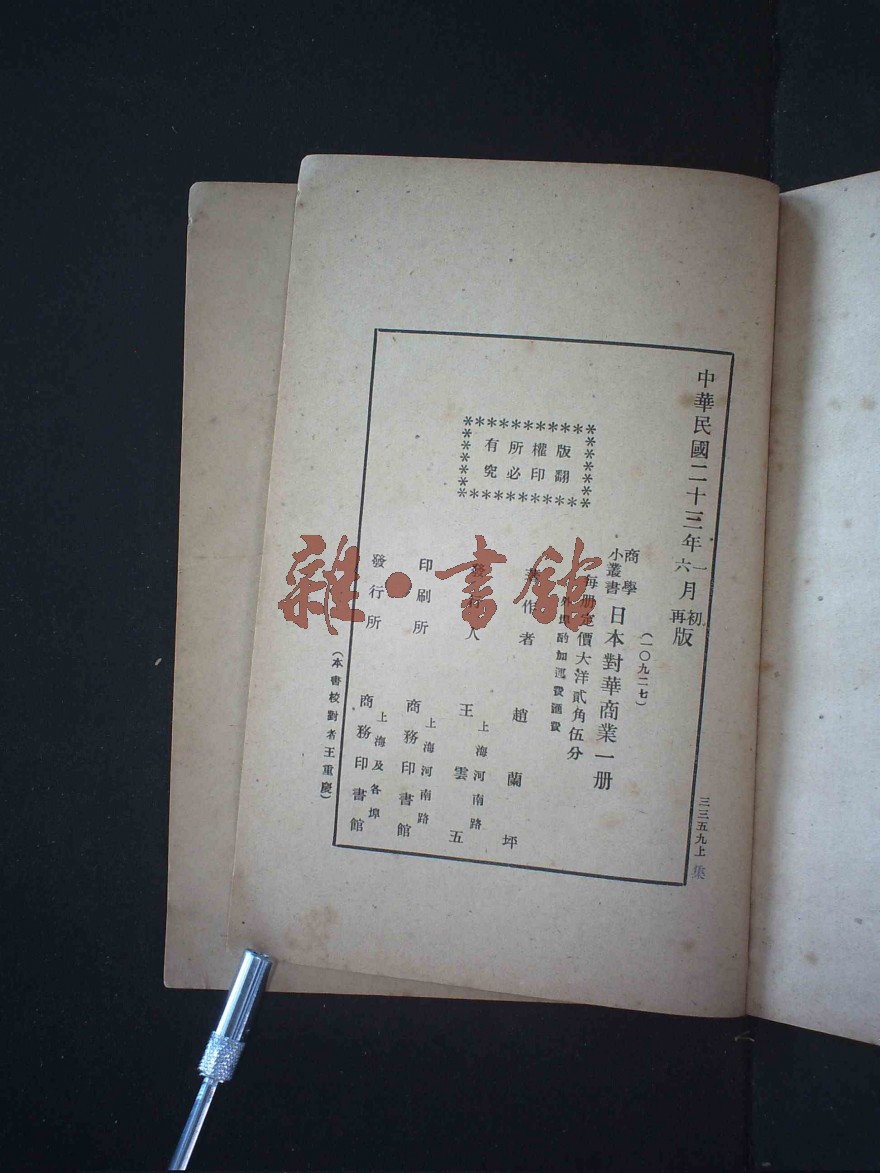 中華民國二十三年一月初版
六月再版
三三五九上
集
(一〇九二七)
商學小叢書
日本對華商業一册
每册定價大洋貳角伍分
外埠酌加運費匯費
版權所有
翻印必究
著作者 趙蘭坪
發行人 王雲五
上海河南路
印刷所 商務印書館
上海河南路
發行所 商務印書館
上海及各埠
(本書校對者王重慶)
雜·書館